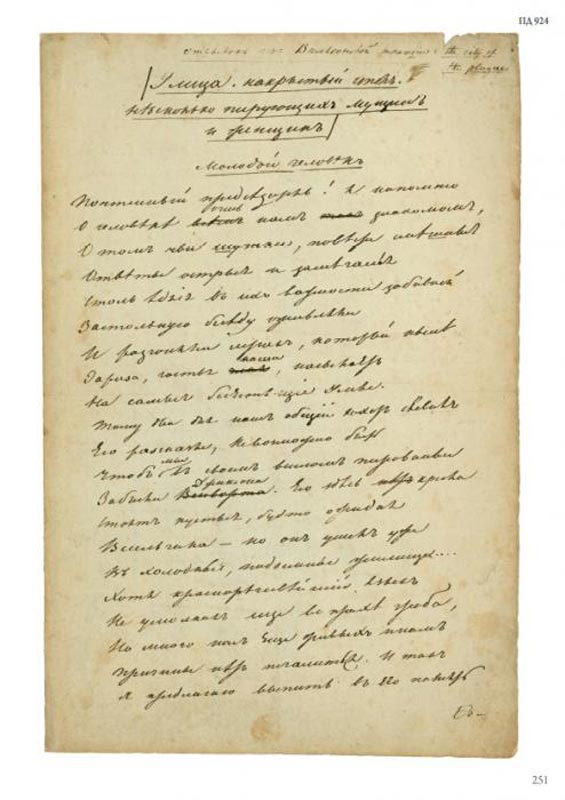 ПД 924
Отрывокъ изъ Вильсоновой трагедіи: the city of
the plague
Улица. накрытый столъ.
нѣсколько пирующихъ мущинъ
и женщинъ
Молодой человѣкъ
Почтенный предсѣдатель! я напомню
О человѣкѣ очень намъ знакомомъ,
О томъ чьи шутки, повѣсти смѣшные
Отвѣты острые и замѣчанья
Столь ѣдкіе въ ихъ важности забавной
Застольную бесѣду оживляли
И разгоняли мракъ, который нынѣ
Зараза, гостья наша, насылаетъ
На самые блестящіе умы.
Тому два дня нашъ общій хохотъ славилъ
Его разсказы, невозможно быть
Чтобъ мы въ своемъ веселомъ пированьи
Забыли Джаксона. Его здѣсь кресла
Стоятъ пустые, будто ожидая
Весельчака — но онъ ушелъ уже
Въ холодныя, подземные жилища....
Хотя краснорѣчивѣйшій языкъ
Не умолкалъ еще во прахѣ гроба,
Но много насъ еще живыхъ и намъ
Причины нѣтъ печалиться. И такъ
Я предлагаю выпить въ его память
251